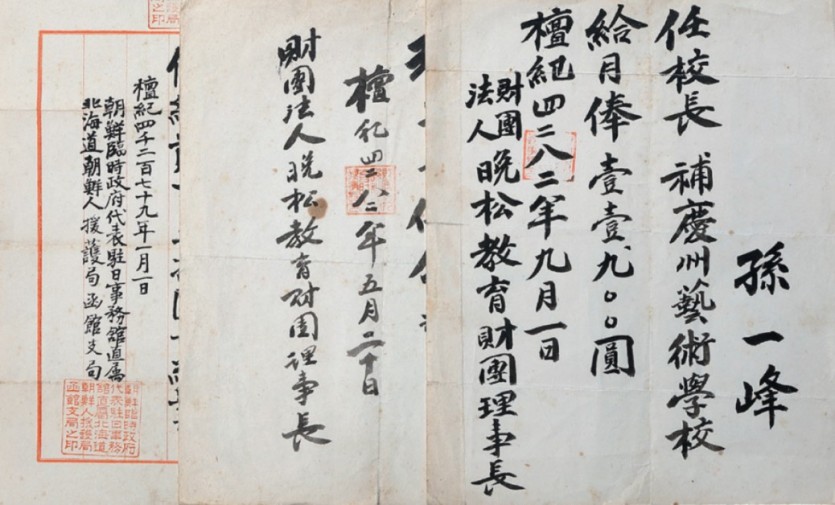 孫一峰
任校長 補慶州藝術學校
給月俸壹壹,九〇〇圓
檀紀四二八二年九月一日
財團法人 晩松教育財團理事長
檀紀四二八二年五月二十日
財團法人晩松教育財團理事長
檀紀四千二百七十九年一月一日
朝鮮臨時政府代表駐日事務館直属
北海道朝鮮人援護局函館支局
代表駐日事務
館直属北海道
朝鮮人援護局
函館支局之印